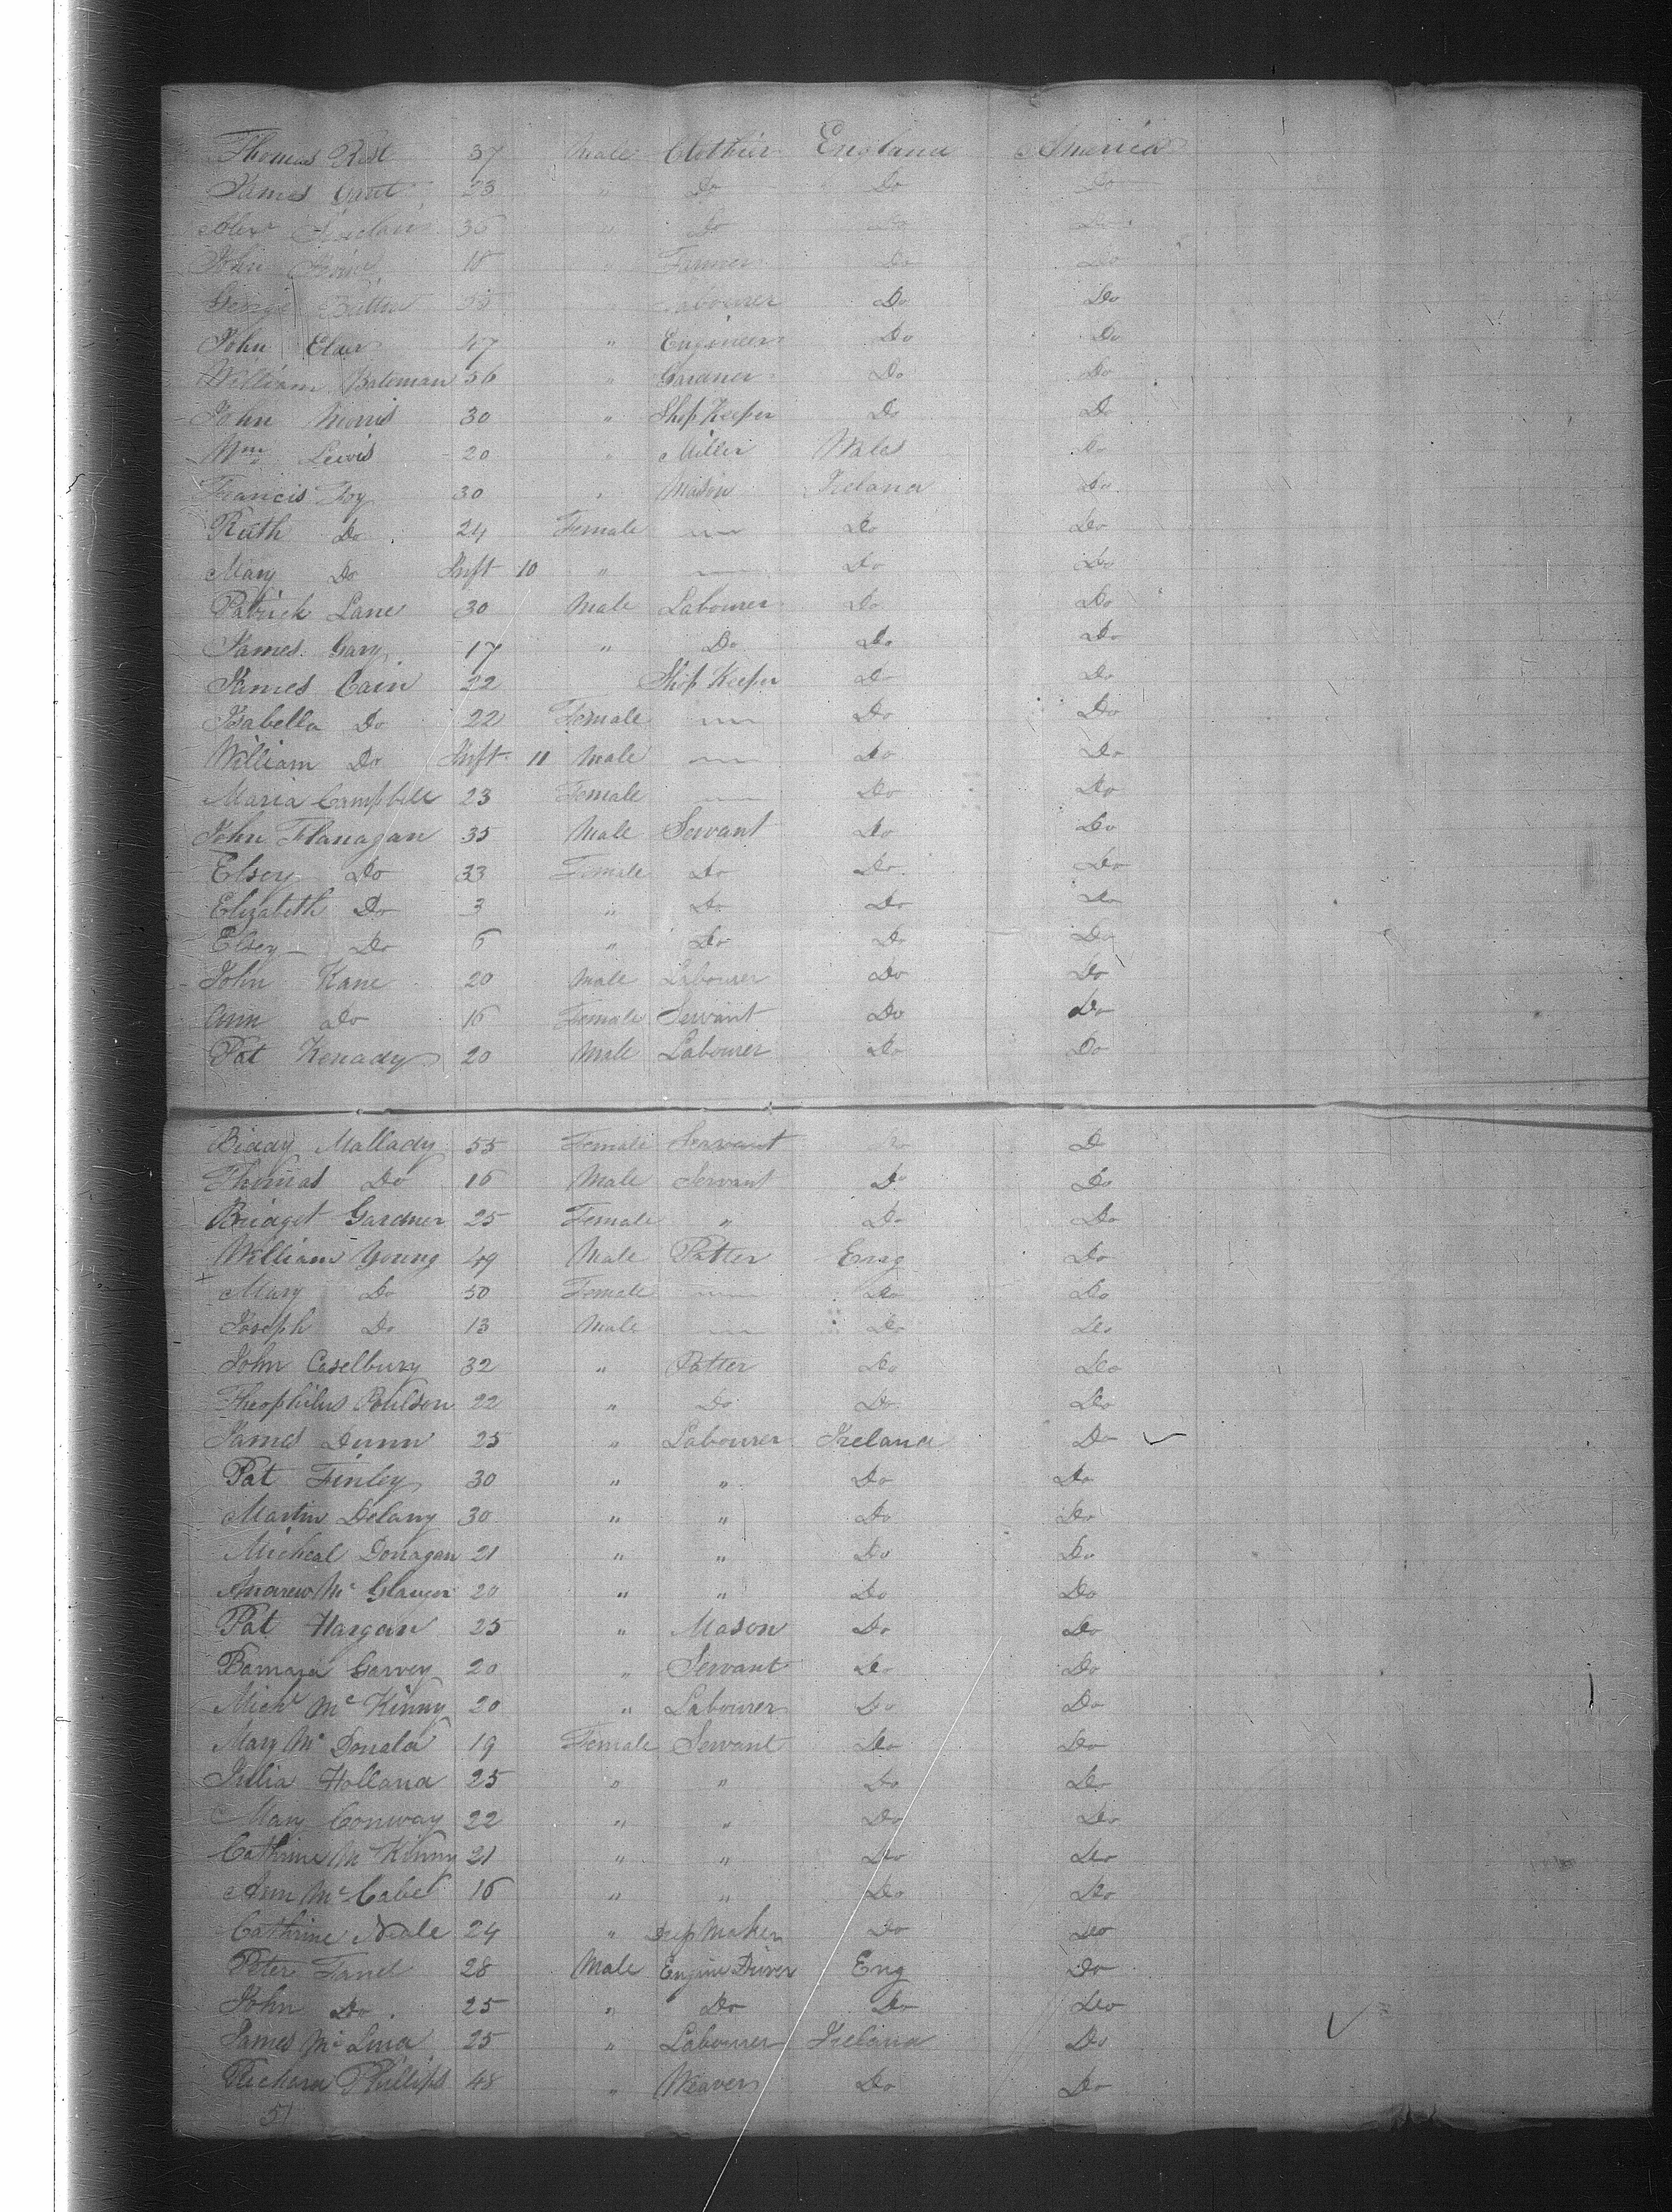 Thomas Rest 37 Male Clothier England America
James Gant 23 " Do Do Do
Alexr Sinclair 36 " Do Do Do
John 18 " Farmer Do Do
George " Labourer Do Do
John Elder 47 " Engineer Do Do
William Bateman 56 " Gardner Do Do
John Morris 30 " Shop Keeper Do Do
Wm Lewis 20 " Miller Wales Do
Francis Foy 30 " Mason Ireland Do
Ruth Do 24 Female Do Do
Mary Do Inft 10 " Do Do
Patrick Lane 30 Male Labourer Do Do
James Gary 17 " Do Do Do
James Cain 22 Shop Keeper Do Do
Isabella Do 22 Female Do Do
William Do Inft 11 Male Do Do
Maria Campbell 23 Female Do Do
John Flanagan 35 Male Servant Do Do
Elsey Do 33 Female Do Do Do
Elizabeth Do 3 " Do Do Do
Elsey Do 6 " Do Do Do
John Kane 20 Male Labourer Do Do
Ann Do 16 Female Servant Do Do
Pat Kenady 20 Male Labourer Do Do
Biddy Mallady 55 Female Servant Do D
Thomas Do 16 Male Servant Do Do
Bridget Gardner 25 Female " Do Do
William Young 49 Male Potter Eng Do
Mary Do 50 Female Do Do
Joseph Do 13 Male Do Do
John Caselbury 32 " Potter Do Do
Theophilus Poulson 22 " Do Do Do
James Dunn 25 " Labourer Ireland Do
Pat Finley 30 " " Do Do
Martin Delany 30 " " Do Do
Micheal Donagan 21 " " Do Do
Andrew Mc 20 " " Do Do
Pat Hargan 25 " Mason Do Do
Barnard Garvey 20 " Servant Do Do
Michl Mc Kinny 20 " Labourer Do Do
Mary Mc Donald 19 Female Servant Do Do
Julia Holland 25 " " Do Do
Mary Conway 22 " " Do Do
Cathrine Mc Kinny 21 " " Do Do
Ann Mc Cabe 16 " " Do Do
Cathrine Neale 24 " Maker Do Do
Peter 28 Male Engine Driver Eng Do
John Do 25 " Do Do Do
James Mc 25 " Labourer Ireland Do
Richard Phillips 48 " Weaver Do Do
51